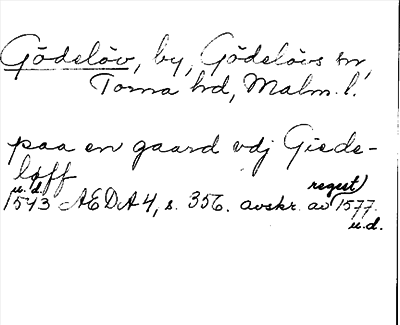 Gödelöv, by, Gödelövs sn,
Torna hd, Malm. l.
paa en gaard vdj Giede-
løff
u.d. regist)
1543 AEDA 4, s. 356. avskr. av 1577.
u.d.